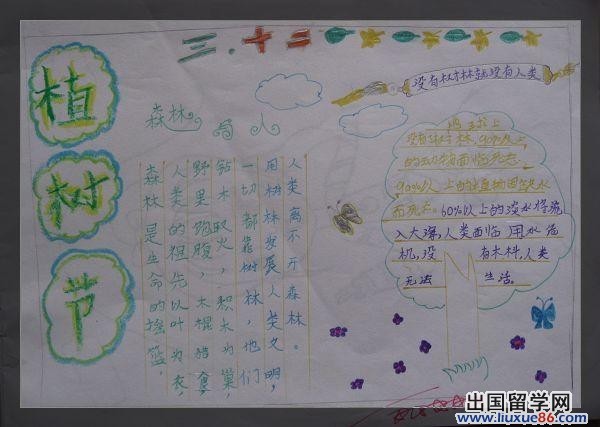 植
树
节
三.十二
没有树林就没有人类
森林与人
森林是生命的摇篮,
人类的祖先以叶为衣,
野果饱腹,木棍猎食,
钻木取火,积木为巢,
一切都靠树林,他们
用树林发展人类文明,
人类离不开森林。
地球上
没有树林,90%以上
的动物面临死亡
90%以上的植物因缺水
而死亡。60%以上的淡水将流
入大海,人类面临用水危
机,没有木料,人类
无法生活。
出国留学网
www.liuxue86.com